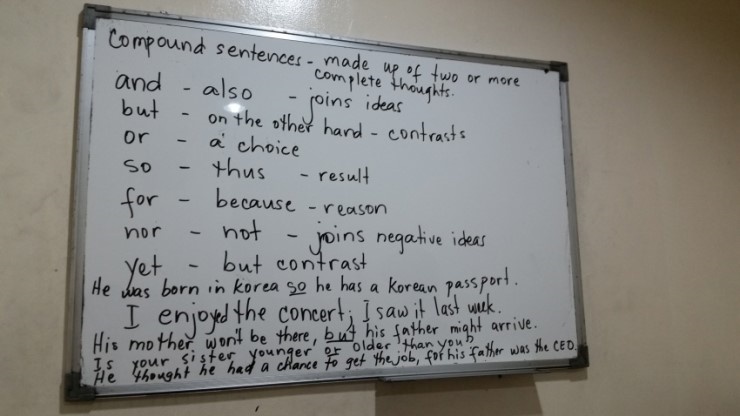 Compound sentences - made up of two or more
complete thoughts.
and - also - joins ideas
but - on the other hand - contrasts
or - a choice
so - thus - result
for - because - reason
nor - not - joins negative ideas
yet - but contrast
He was born in Korea so he has a Korean passport.
I enjoyed the concert; I saw it last week.
His mother won't be there, but his father might arrive.
Is your sister younger or older than you?
He thought he had a chance to get the job, for his father was the CEO.